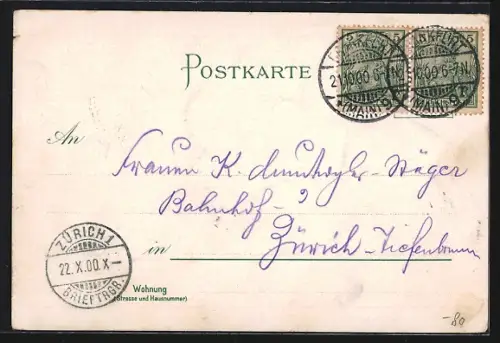 POSTKARTE
FRANKFURT
21.10.00 6-7N.
*(MAIN) 9
5
An
Frauen K.
Bahnhof-
in Zürich-Tiefenbrunnen
ZÜRICH 1
22.X.00.X-
BRIEFTRGR.
Wohnung
(Strasse und Hausnummer)